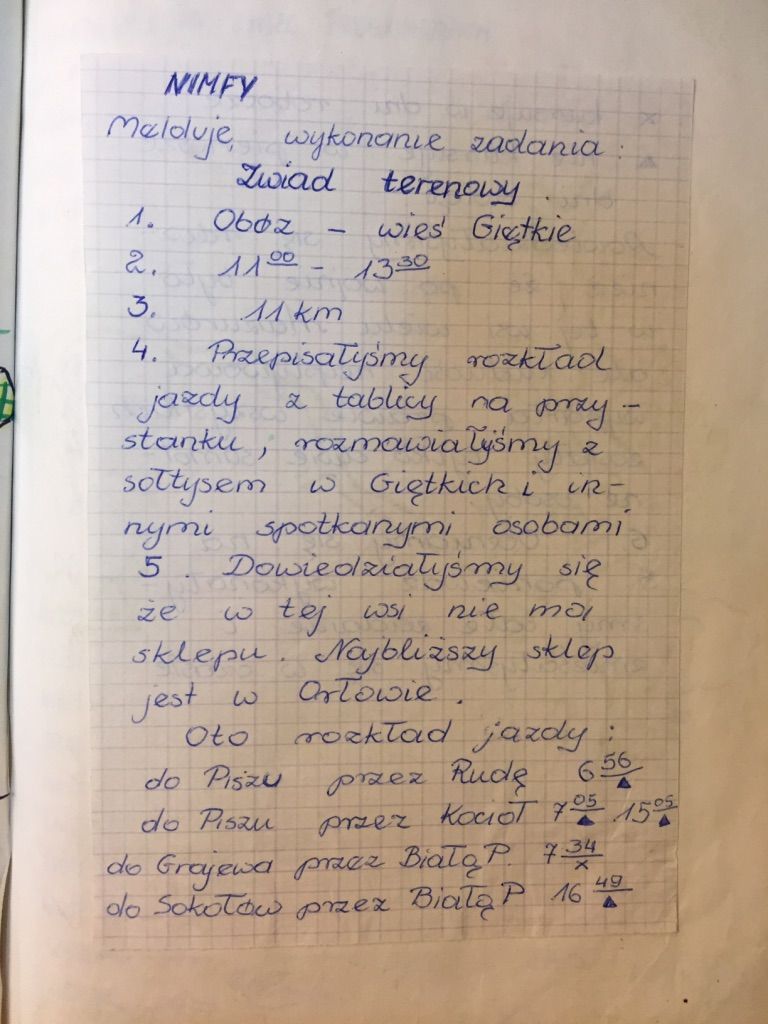 NIMFY
Melduję wykonanie zadania:
Zwiad terenowy.
1. Obóz – wieś Giętkie
2. 11⁰⁰ – 13³⁰
3. 11 km
4. Przepisałyśmy rozkład
jazdy z tablicy na przy-
stanku, rozmawiałyśmy z
sołtysem w Giętkich i in-
nymi spotkanymi osobami
5. Dowiedziałyśmy się
że w tej wsi nie ma
sklepu. Najbliższy sklep
jest w Orłowie.
Oto rozkład jazdy:
do Piszu przez Rudę 6⁵⁶▲
do Piszu przez Kocioł 7⁰⁵▲ 15⁰⁵▲
do Grajewa przez Białą P. 7³⁴x
do Sokołów przez Białą P 16⁴⁹▲